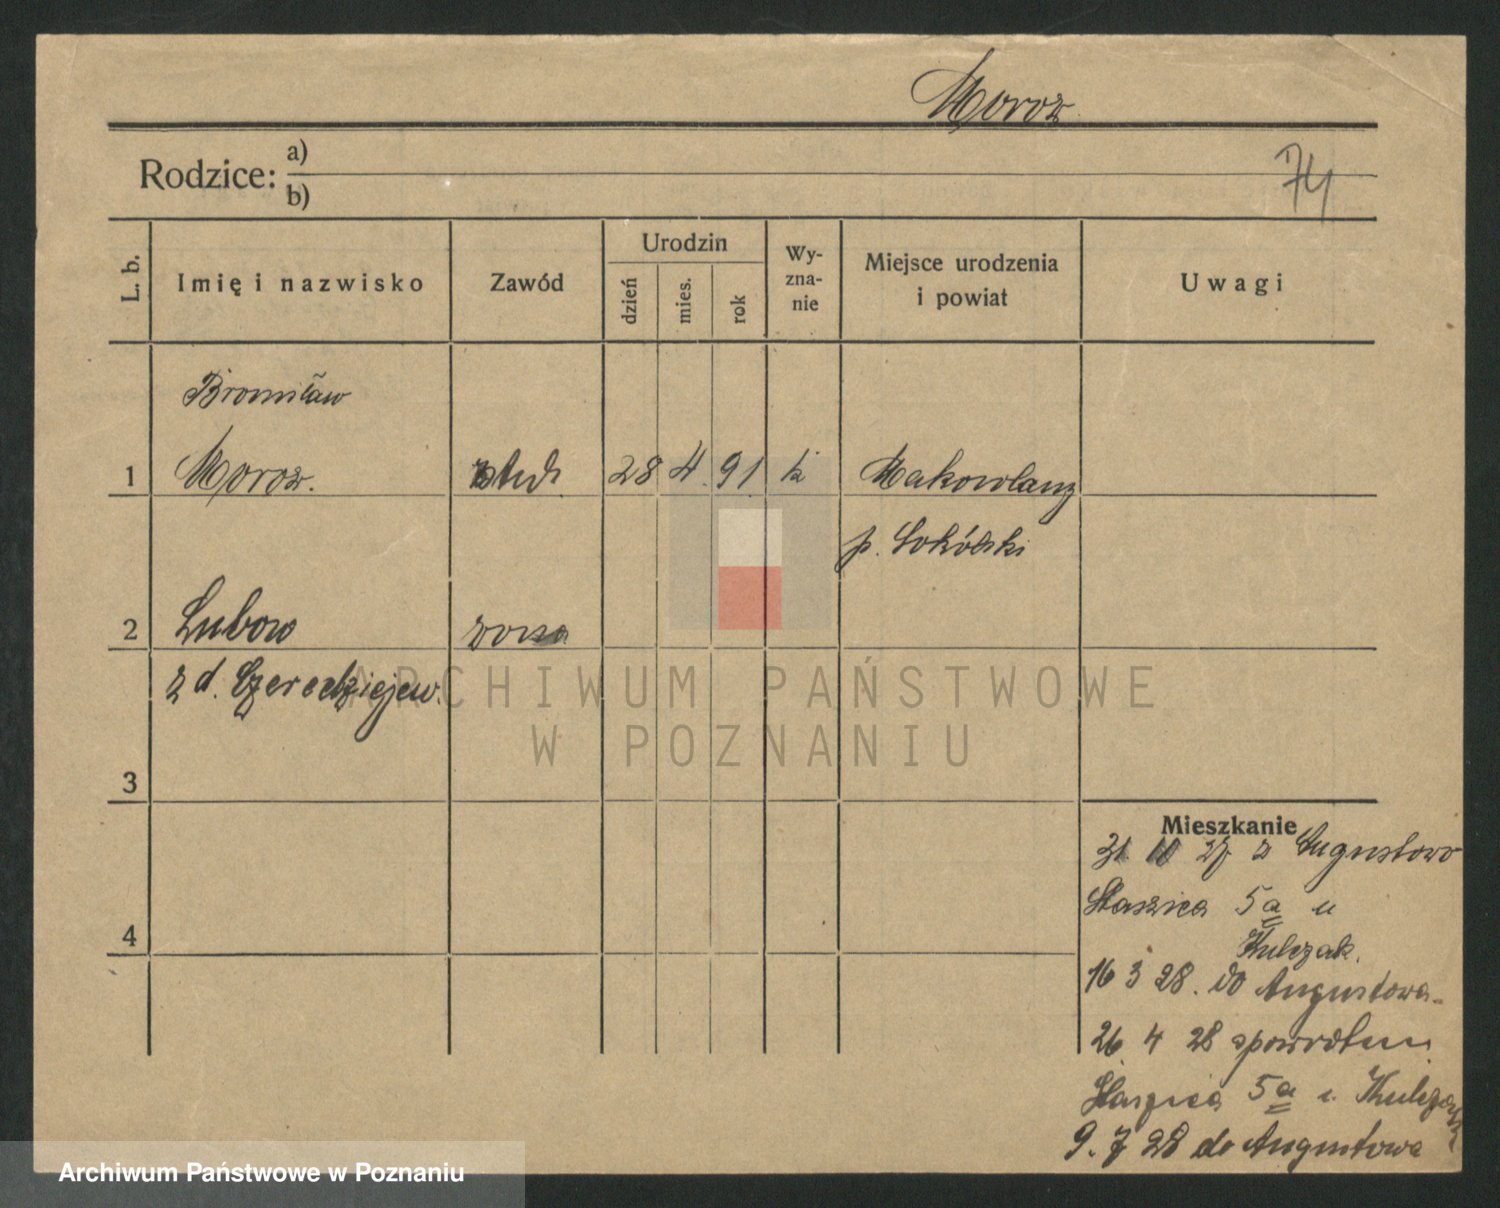 Moroz
Rodzice: a)
b)
74
L. b.
Imię i nazwisko
Zawód
Urodzin
dzień
mies.
rok
Wy-
zna-
nie
Miejsce urodzenia
i powiat
Uwagi
Bronisław
1 Moroz. stud. 28 4. 91 k Makowlany
p. Sokólski
2 Lubow żona
z d. Czeredziejew.
ARCHIWUM PAŃSTWOWE
W POZNANIU
3
4
Mieszkanie
31 10 27 z Augustowo
Staszica 5a u
Kulczak.
16 3 28. do Augustowa-
26 4 28 spowrotem
Staszica 5a u. Kulczak
9. 7 28 do Augustowa
Archiwum Państwowe w Poznaniu